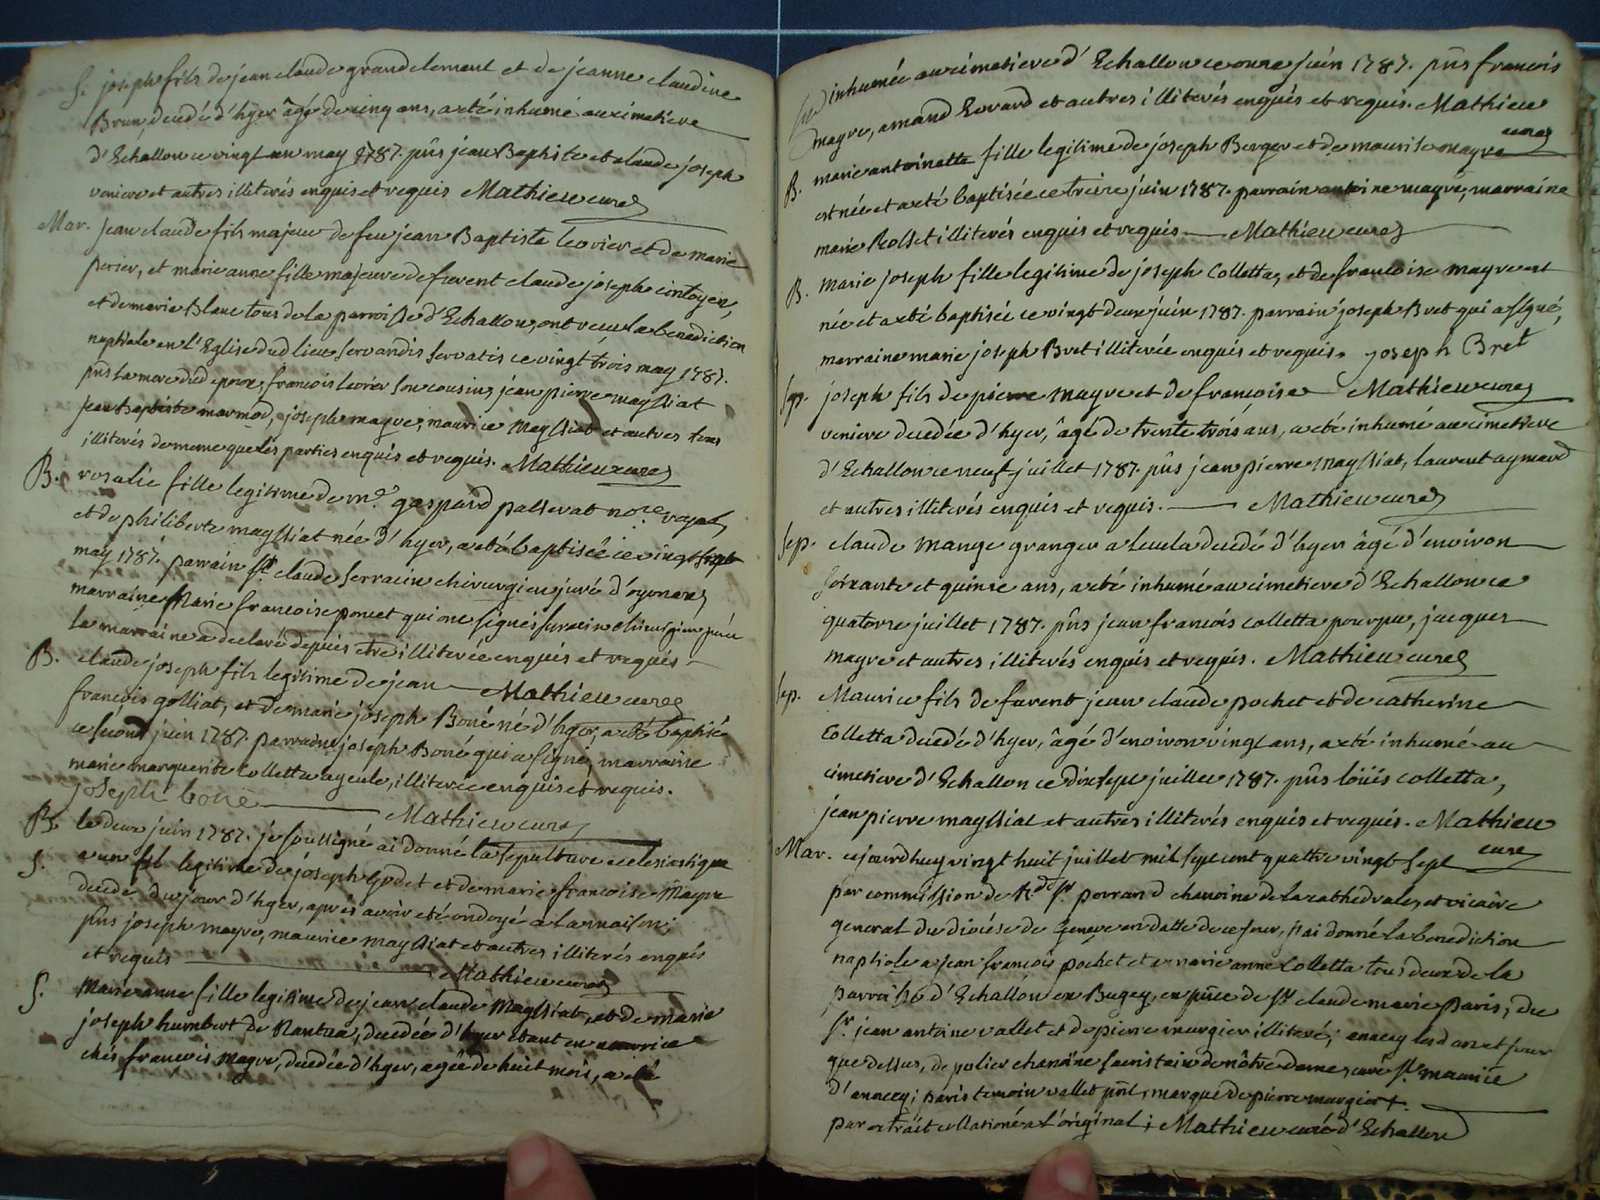 S. joseph fils de jean claude grandclement et de jeanne claudine
Brun, decedé d'hyer âgé de cinq ans, a eté inhumé au cimetiere
d'Echallon ce vingt un may 1787. pñs jean Baptiste et claude joseph
veniere et autres illiterés enquis et requis Mathieu curé
Mar. Jean claude fils majeur de feu jean Baptiste Levrier et de marie
perier, et marie anne fille majeure de furent claude joseph
et de marie Blanc tous de la parroisse d'Echallon, ont recu la benediction
nuptiale en l'Eglise dud lieu servandis servatis ce vingt trois may 1787.
pñs la mere dud epoux, francois son cousin, jean pierre maysiat
jean Baptiste marmod, joseph mayre, maurice Maysiat et autres tous
illiterés de meme que les parties enquis et requis. Mathieu curé
B. rosalie fille legitime de me. gaspard passerat nore. royal
et de philiberte maysiat née d'hyer, a eté baptisée ce vingt sept
may 1787. parrain sr. claude serrain chirurgien juré d'oyonax
marraine Marie francoise poncet qui ont signés chirurgien juré
la marraine a declaré depuis etre illiterée enquis et requis
B. claude joseph fils legitime de jean Mathieu curé
francois golliat, et de marie joseph Boné né d'hyer, a eté baptisé
ce second juin 1787. parrain joseph Boné qui a signé, marraine
marie marguerite Colletta ayeule, illiterée enquis et requis.
joseph boné Mathieu curé
B. le deux juin 1787. je soussigné ai donné la sepulture eclesiastique
S. a un fils legitime de joseph Godet et de marie francoise Mayre
decedé du jour d'hyer, apres avoir eté ondoyé a la maison;
pñs joseph mayre, maurice maysiat et autres illiterés enquis
et requis Mathieu curé
S. Marie anne fille legitime de jean claude Maysiat, et de marie
joseph humbert de Nantua, decedée d'hyer etant en nourrice
chés francois mayre, decedée d'hyer, agée de huit mois, a eté
inhumée au cimetiere d'Echallon ce onze juin 1787. pñs francois
mayre, amand Evrard et autres illiterés enquis et requis. Mathieu
curé
B. marie antoinette fille legitime de joseph Berger et de maurise mayre
est née et a eté baptisée ce treize juin 1787. parrain antoine mayre, marraine
marie Rosset illiterés enquis et requis Mathieu curé
B. Marie joseph fille legitime de joseph Colletta, et de francoise mayre est
née et a eté baptisée ce vingt deux juin 1787. parrain joseph Bret qui a signé,
marraine marie joseph Bret illiterée enquis et requis. joseph Bret
Sep. joseph fils de pierre mayre et de francoise Mathieu curé
veniere decedé d'hyer, âgé de trente trois ans, a eté inhumé au cimetiere
d'Echallon ce neuf juillet 1787. pñs jean pierre Maysiat, Laurent aymard
et autres illiterés enquis et requis. Mathieu curé
Sep. claude Mange granger a decedé d'hyer âgé d'environ
soixante et quinze ans, a eté inhumé au cimetiere d'Echallon ce
quatorze juillet 1787. pñs jean francois colletta, jacques
mayre et autres illiterés enquis et requis. Mathieu curé
Sep. Maurice fils de furent jean claude pochet et de catherine
Colletta decedé d'hyer, âgé d'environ vingt ans, a eté inhumé au
cimetiere d'Echallon ce dix sept juillet 1787. pñs loüis colletta,
jean pierre maysiat et autres illiterés enquis et requis. Mathieu
curé
Mar. cejourdhuy vingt huit juillet mil sept cent quatre vingt sept
par commission de Rd. sr. perrand chanoine de la cathedrale, et vicaire
general du diocése de Geneve en datte de ce jour, j'ai donné la benediction
nuptiale a jean francois pochet et a marie anne Colletta tous deux de la
parroisse d'Echallon en Bugey, en pñce de sr. claude marie Paris, de
sr. jean antoine vallet et de pierre murgier illiteré; anecy les d an et jour
que dessus, de polier chanoine sacristain de nôtre dame, curé st. maurice
d'anecy; paris temoin vallet pñt, marque de pierre murgier +.
par extrait collationé a l'original; Mathieu curé d'Echallon